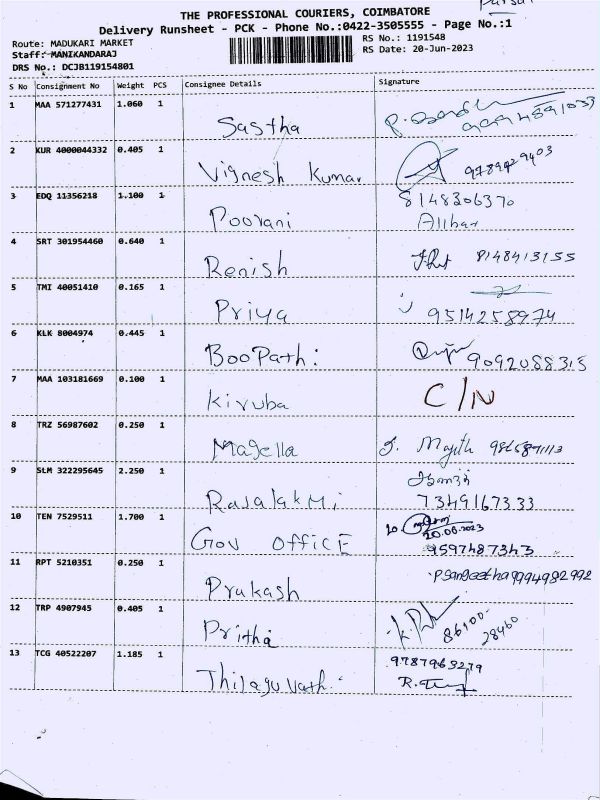 Parsal
THE PROFESSIONAL COURIERS, COIMBATORE
Delivery Runsheet - PCK - Phone No.:0422-3505555 - Page No.:1
Route: MADUKARI MARKET
RS No.: 1191548
Staff: MANIKANDARAJ
RS Date: 20-Jun-2023
DRS No.: DCJB119154801
S No Consignment No Weight PCS Consignee Details Signature
1 MAA 571277431 1.060 1 Sastha
2 KUR 4000044332 0.405 1 Vignesh Kumar 9789729403
3 EDQ 11356218 1.100 1 Poorani 8148306370
4 SRT 301954460 0.640 1 Renish 8148413155
5 TMI 40051410 0.165 1 Priya 9514258974
6 KLK 8004974 0.445 1 BooPathi 9092088315
7 MAA 103181669 0.100 1 Kiruba C/N
8 TRZ 56987602 0.250 1 Magella
9 SLM 322295645 2.250 1 Rajalakmi
7349167333
10 TEN 7529511 1.700 1 Gov OFFICE
20.06.2023
9597487343
11 RPT 5210351 0.250 1 Prakash Psangeetha 9994982992
12 TRP 4907945 0.405 1 Pritha 86100-
28460
13 TCG 40522207 1.185 1 Thilaguvathi 9787963279